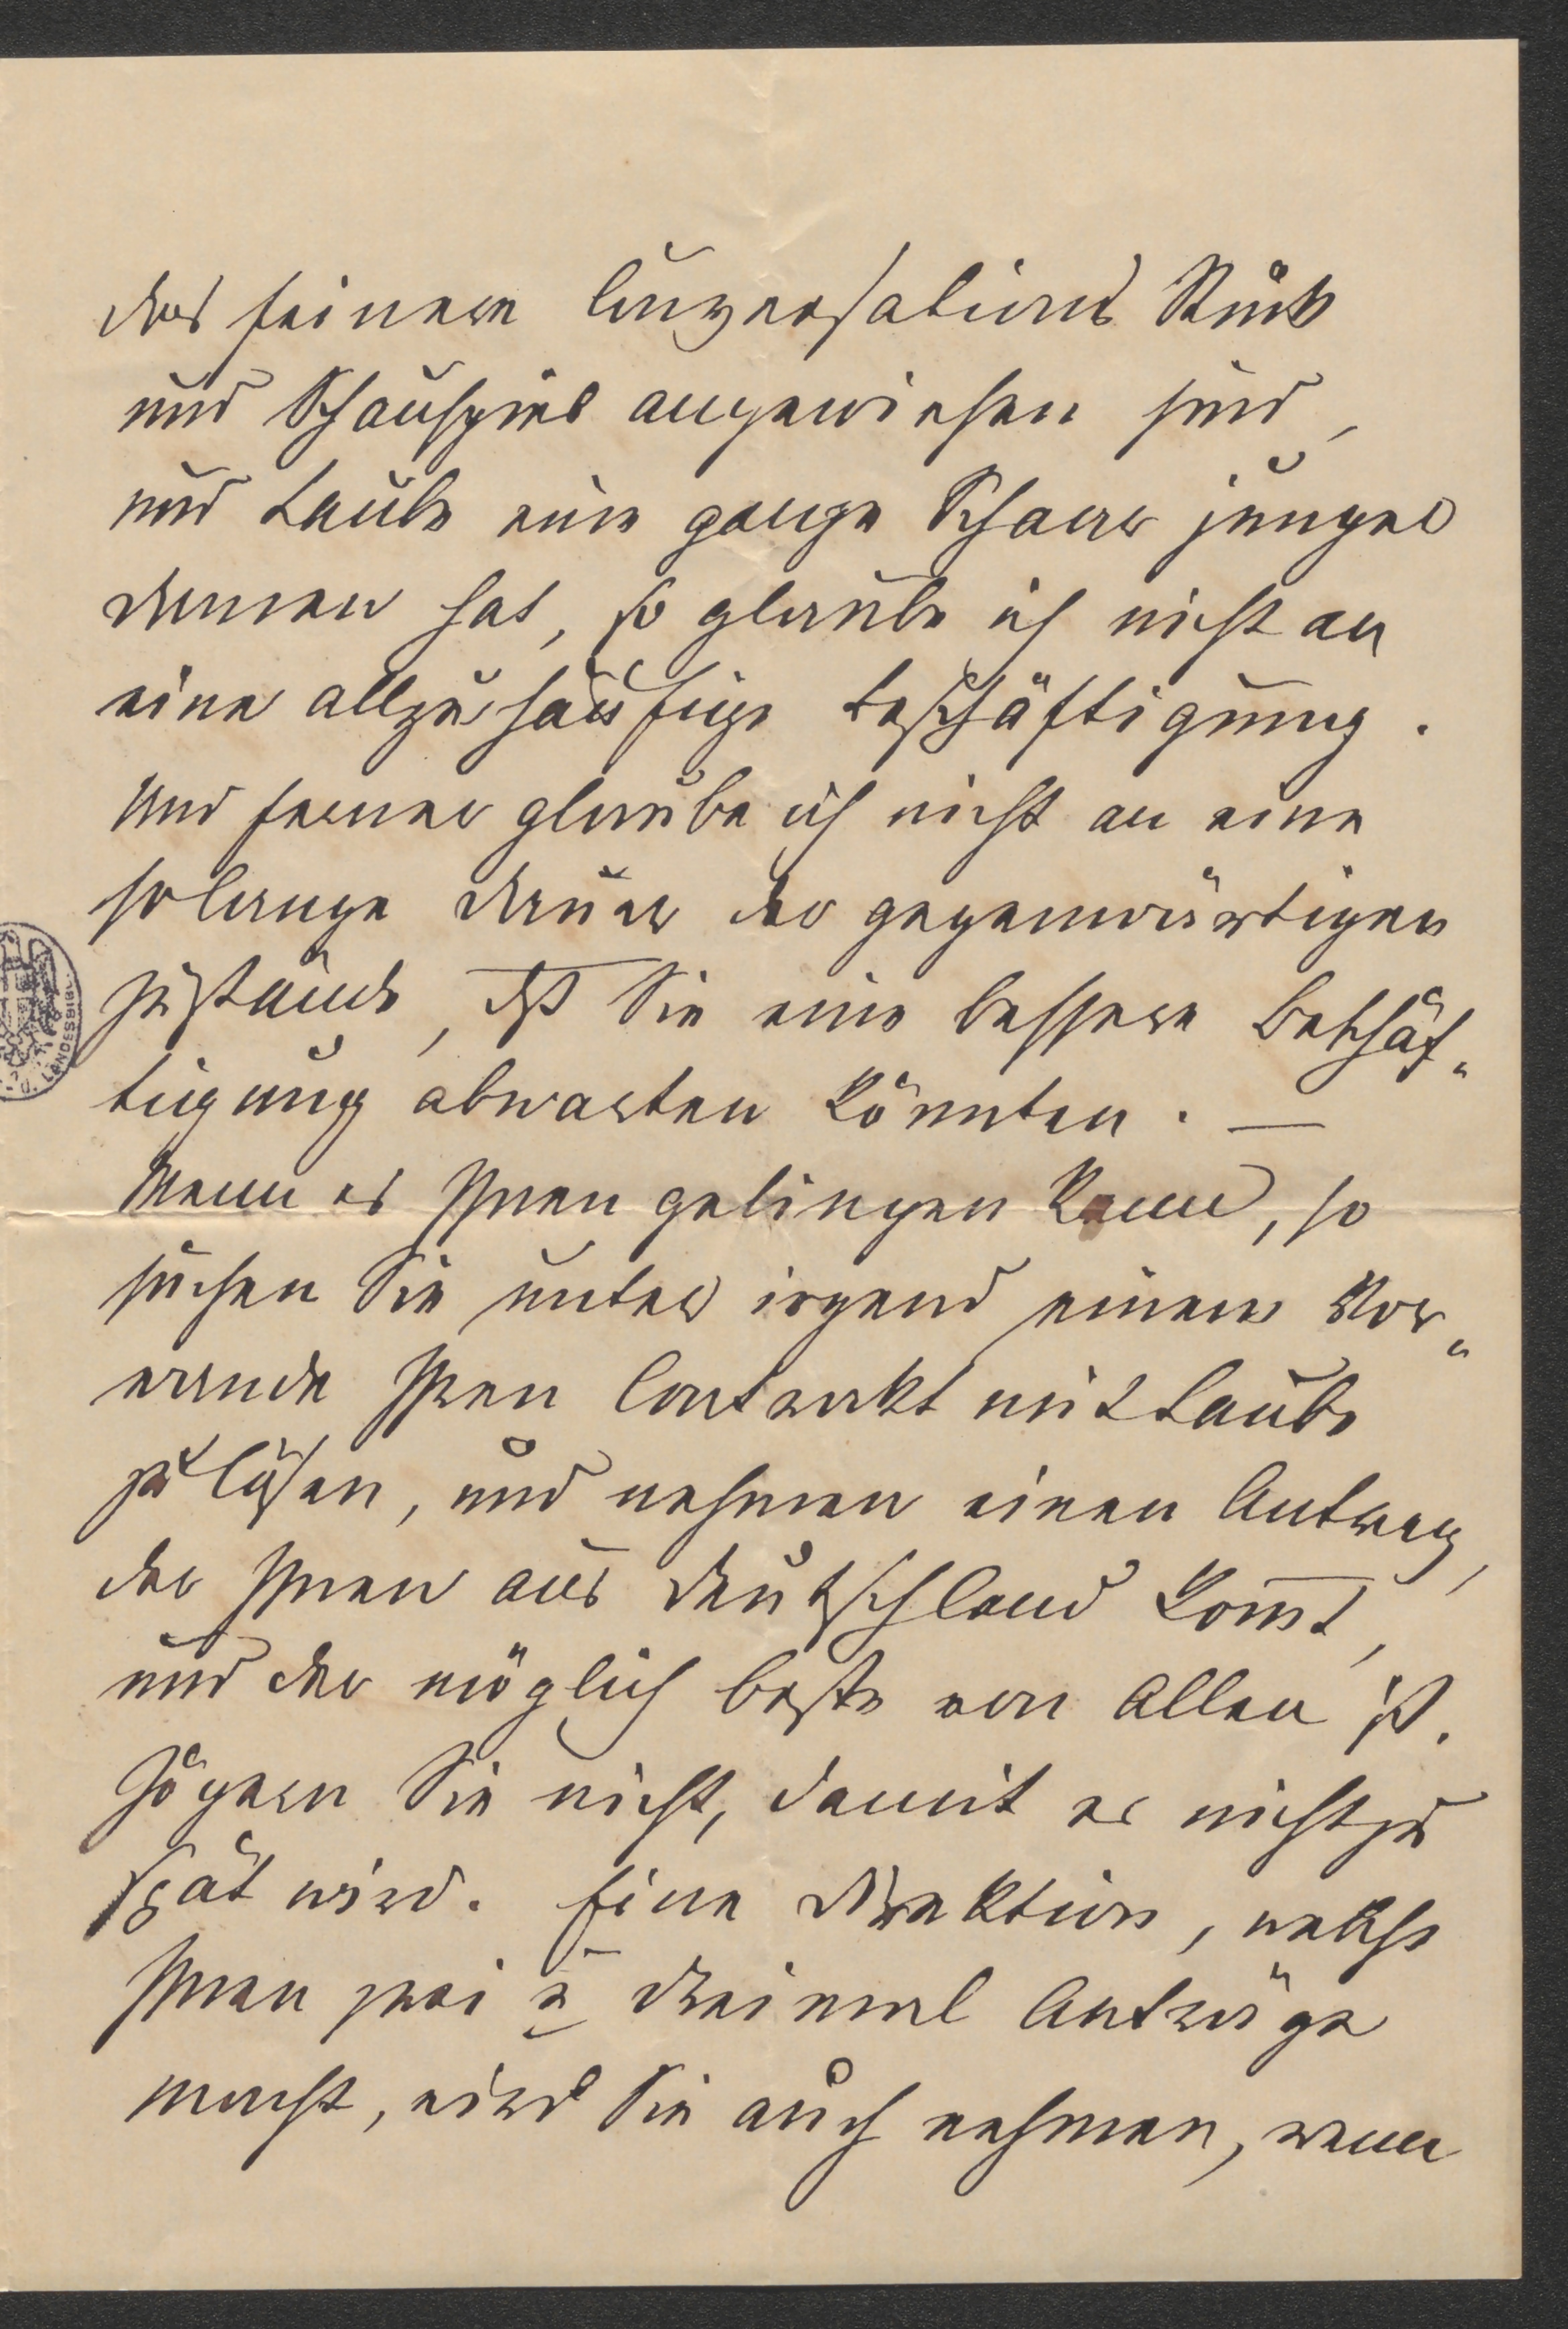 das feinere Conversations Stück
und Schauspiel angewiesen sind,
und Laube eine ganze Schaar junger
Damen hat, so glaube ich nicht an
eine allzuhäufige Beschäftigung.
Und ferner glaube ich nicht an eine
so lange Dauer der gegenwärtigen
Zustände, dß Sie eine bessere Beschäf„
tigung abwarten könnten. —
Wenn es Ihnen gelingen kann, so
suchen Sie unter irgend einem Vor„
wande Ihren Contrakt mit Laube
zu lösen, und nehmen einen Antrag,
der Ihnen aus Deutschland kom̅t,
und der möglich beste von allen ist.
Zögern Sie nicht, damit es nicht zu
spät wird. Eine Direktion, welche
Ihnen zwei u dreimal Anträge
macht, wird Sie auch nehmen, wenn
LANDESBIBL.